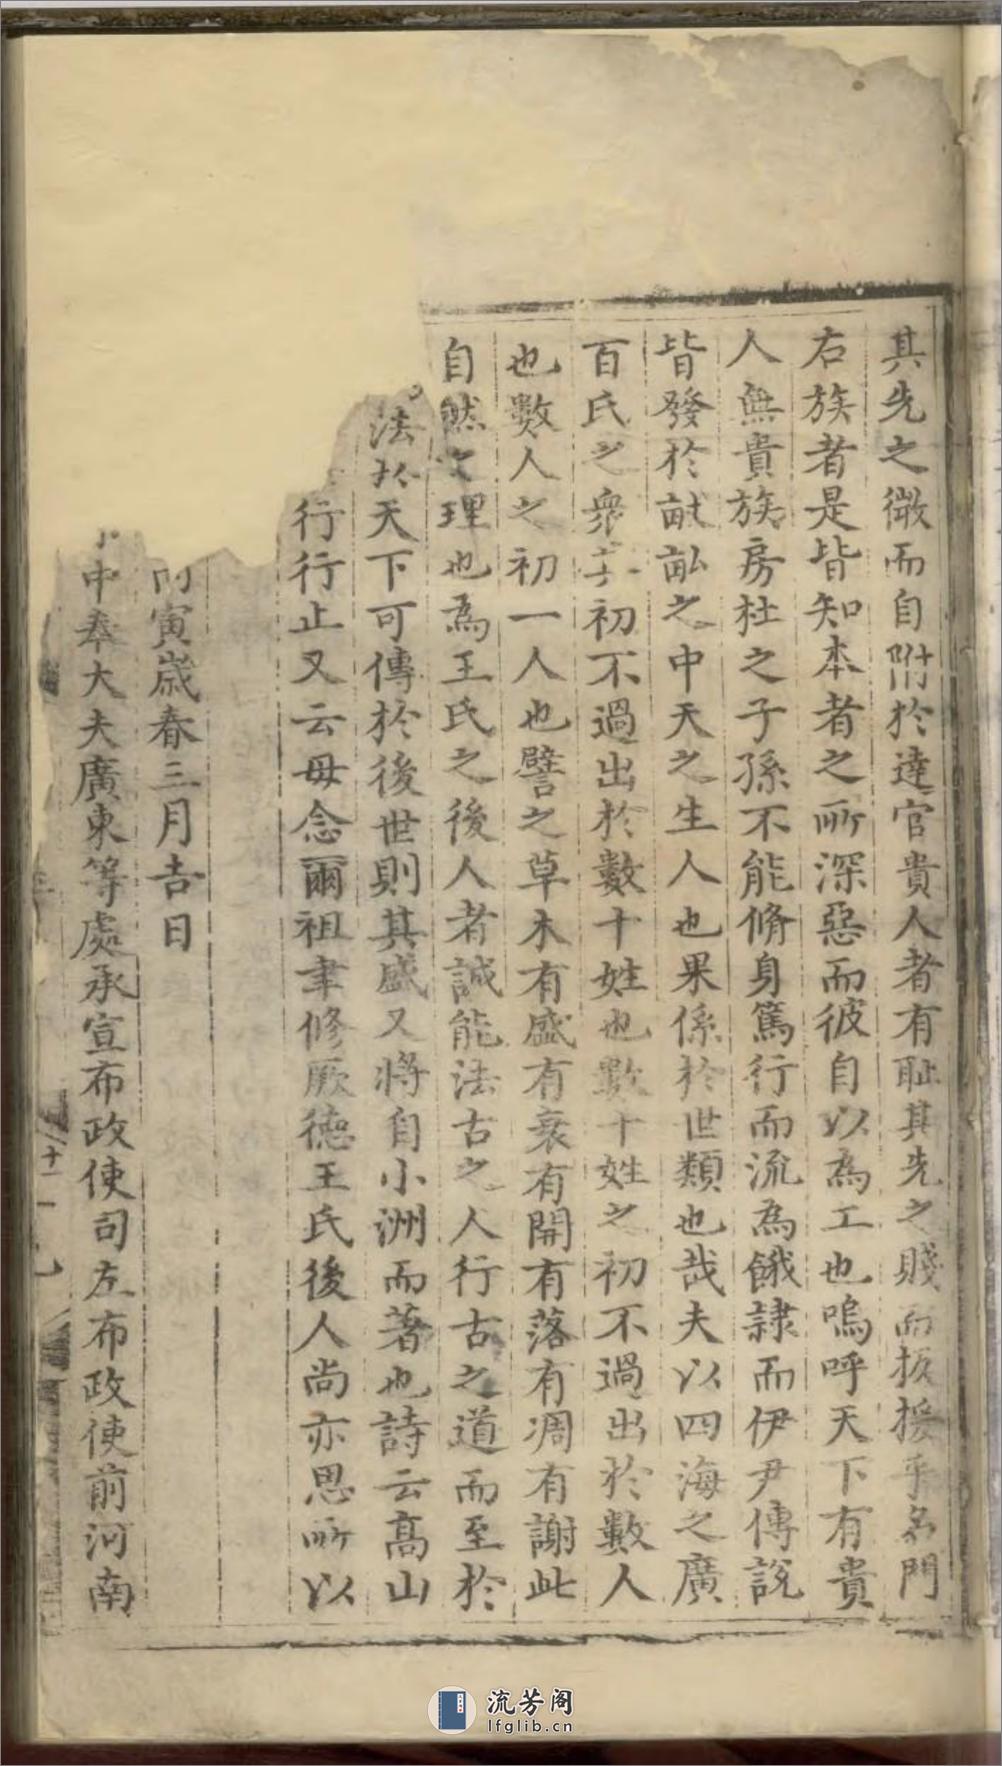 其先之微而自附於達官貴人者有耻其先之賤而扳援乎名門
右族者是皆知本者之所深惡而彼自以為工也嗚呼天下有貴
人無貴族房杜之子孫不能脩身篤行而流為餓隷而伊尹傳說
皆發於畎畝之中天之生人也果係於世類也哉夫以四海之廣
百氏之衆其初不過出於數十姓也數十姓之初不過出於數人
也數人之初一人也譬之草木有盛有衰有開有落有凋有謝此
自然之理也為王氏之後人者誠能法古之人行古之道而至於
法於天下可傳於後世則其盛又將自小洲而著也詩云高山
行行止又云毋念爾祖聿修厥德王氏後人尚亦思所以
寅歲春三月吉日
中奉大夫廣東等處承宣布政使司左布政使前河南
十一
流芳阁
lfglib.cn